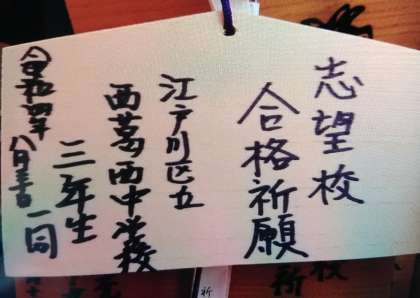 志望校
合格祈願
江戸川区立
西葛西中学校
三年生
一同
令和四年
八月吉日
校
所
祈